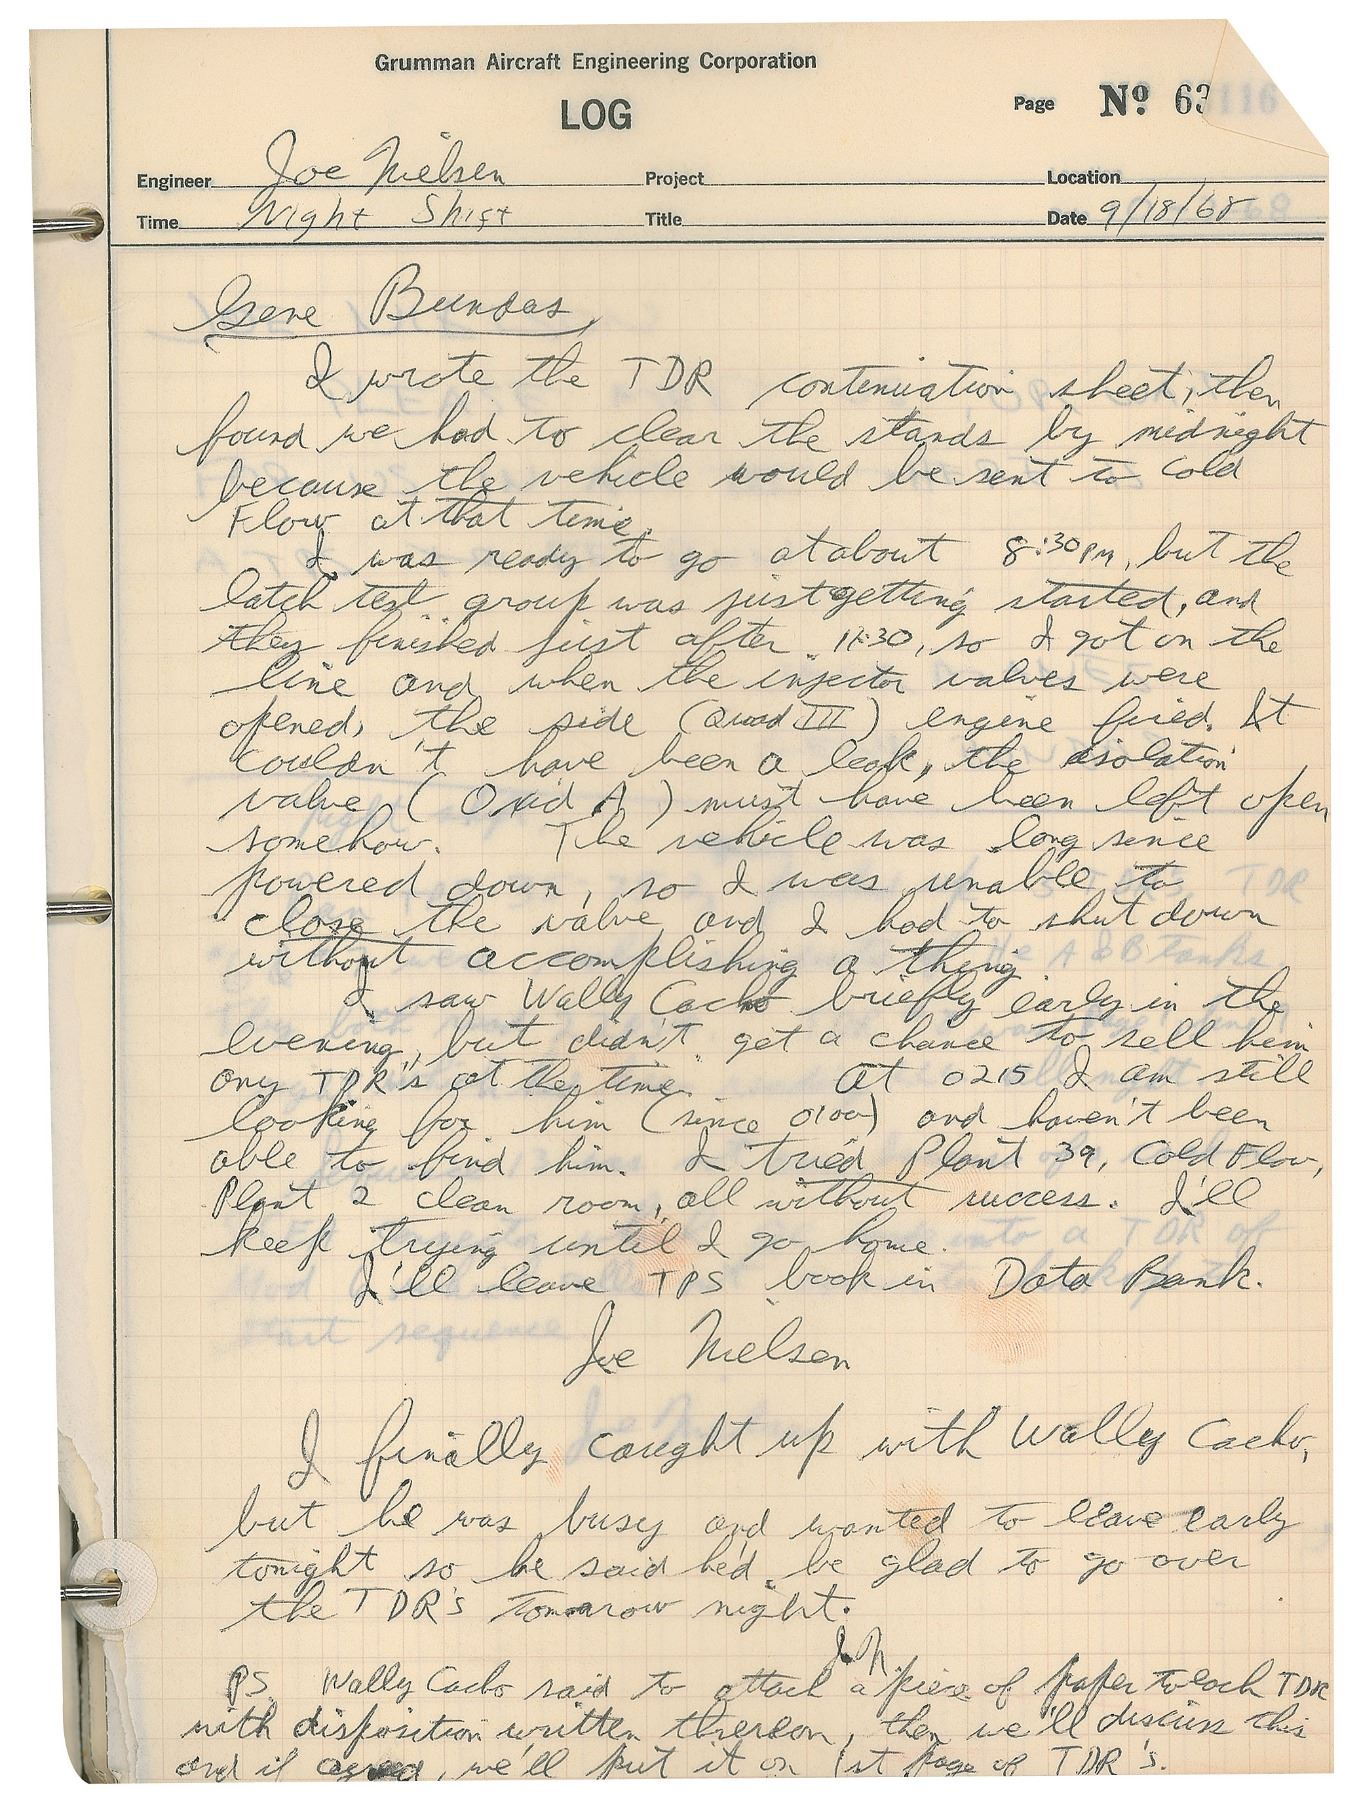 Grumman Aircraft Engineering Corporation
LOG
Page Nº 63
Engineer Joe Nielsen Project Location
Time Night Shift Title Date 9/18/68
Gene Bundas,
I wrote the TDR contenuation sheet, then
found we had to clear the stands by midnight
because the vehicle would be sent to Cold
Flow at that time.
I was ready to go at about 8:30 PM, but the
latch test group was just getting started, and
they finished just after 11:30, so I got on the
line and when the injector valves were
opened, the side (Quad III) engine fired. It
couldn't have been a leak, the isolation
valve (Oxid A) must have been left open
somehow. The vehicle was long since
powered down, so I was unable to
close the valve and I had to shut down
without accomplishing a thing.
I saw Wally Cacho briefly early in the
evening, but didn't get a chance to sell him
any TDR's at the time. At 0215 I am still
looking for him (since 0100) and haven't been
able to find him. I tried Plant 39, Cold Flow,
Plant 2 clean room, all without success. I'll
keep trying until I go home.
I'll leave TPS book in Data Bank.
Joe Nielsen
I finally caught up with Wally Cacho,
but he was busy and wanted to leave early
tonight so he said he'd be glad to go over
the TDR's tomorrow night.
J.N.
PS. Wally Cacho said to attach a piece of paper to each TDR
with disposition written thereon, then we'll discuss this
and if agreed, we'll put it on 1st page of TDR's.